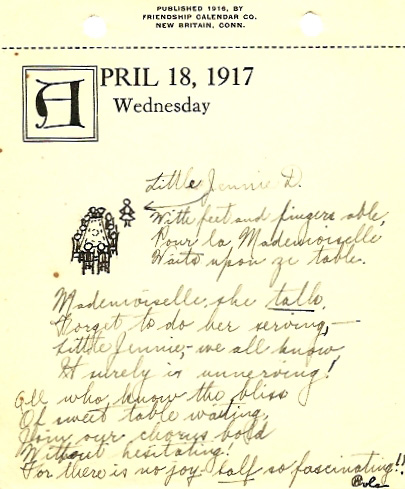 PUBLISHED 1916, BY
FRIENDSHIP CALENDAR CO.
NEW BRITAIN, CONN.
APRIL 18, 1917
Wednesday
Little Jennie D.
With feet and fingers able,
Pour la Mademoiselle
Waits upon ze table.
Mademoiselle, she talk,
Forget to do her serving,—
Little Jennie,— we all know
It surely is unnerving!
All who know the bliss
Of sweet table waiting,
Join our chorus bold
Without hesitating!
For there is no joy half so fascinating!!